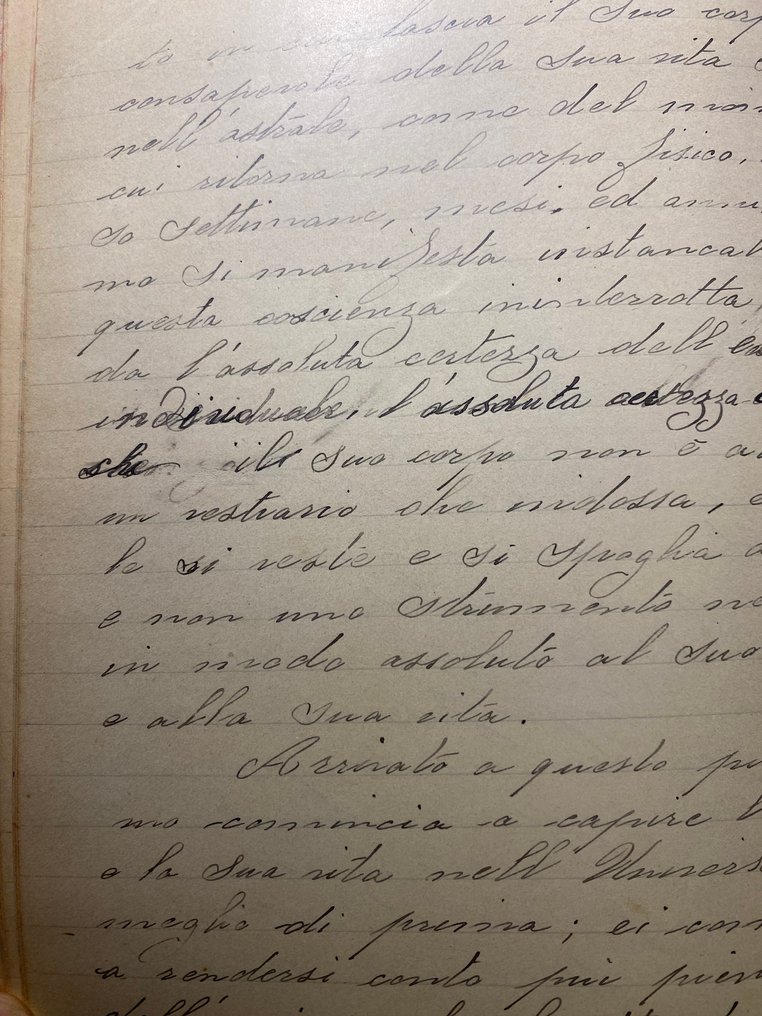 to in cui lascia il suo corp
consapevole della sua vita
nell'astrale, come del mom
cui ritorna nel corpo fisico,
so settimane, mesi, ed anni
mo si manifesta instancab
questa coscienza ininterrotta
da l'assoluta certezza dell'
individuale, l'assoluta certezza
che il suo corpo non è a
un vestiario che indossa, e
le si veste e si spoglia a
e non uno strumento ne
in modo assoluto al suo
e alla sua vita.
Arrivato a questo pu
mo comincia a capire
e la sua vita nell'Univers
meglio di prima; ei com
a rendersi conto più pien